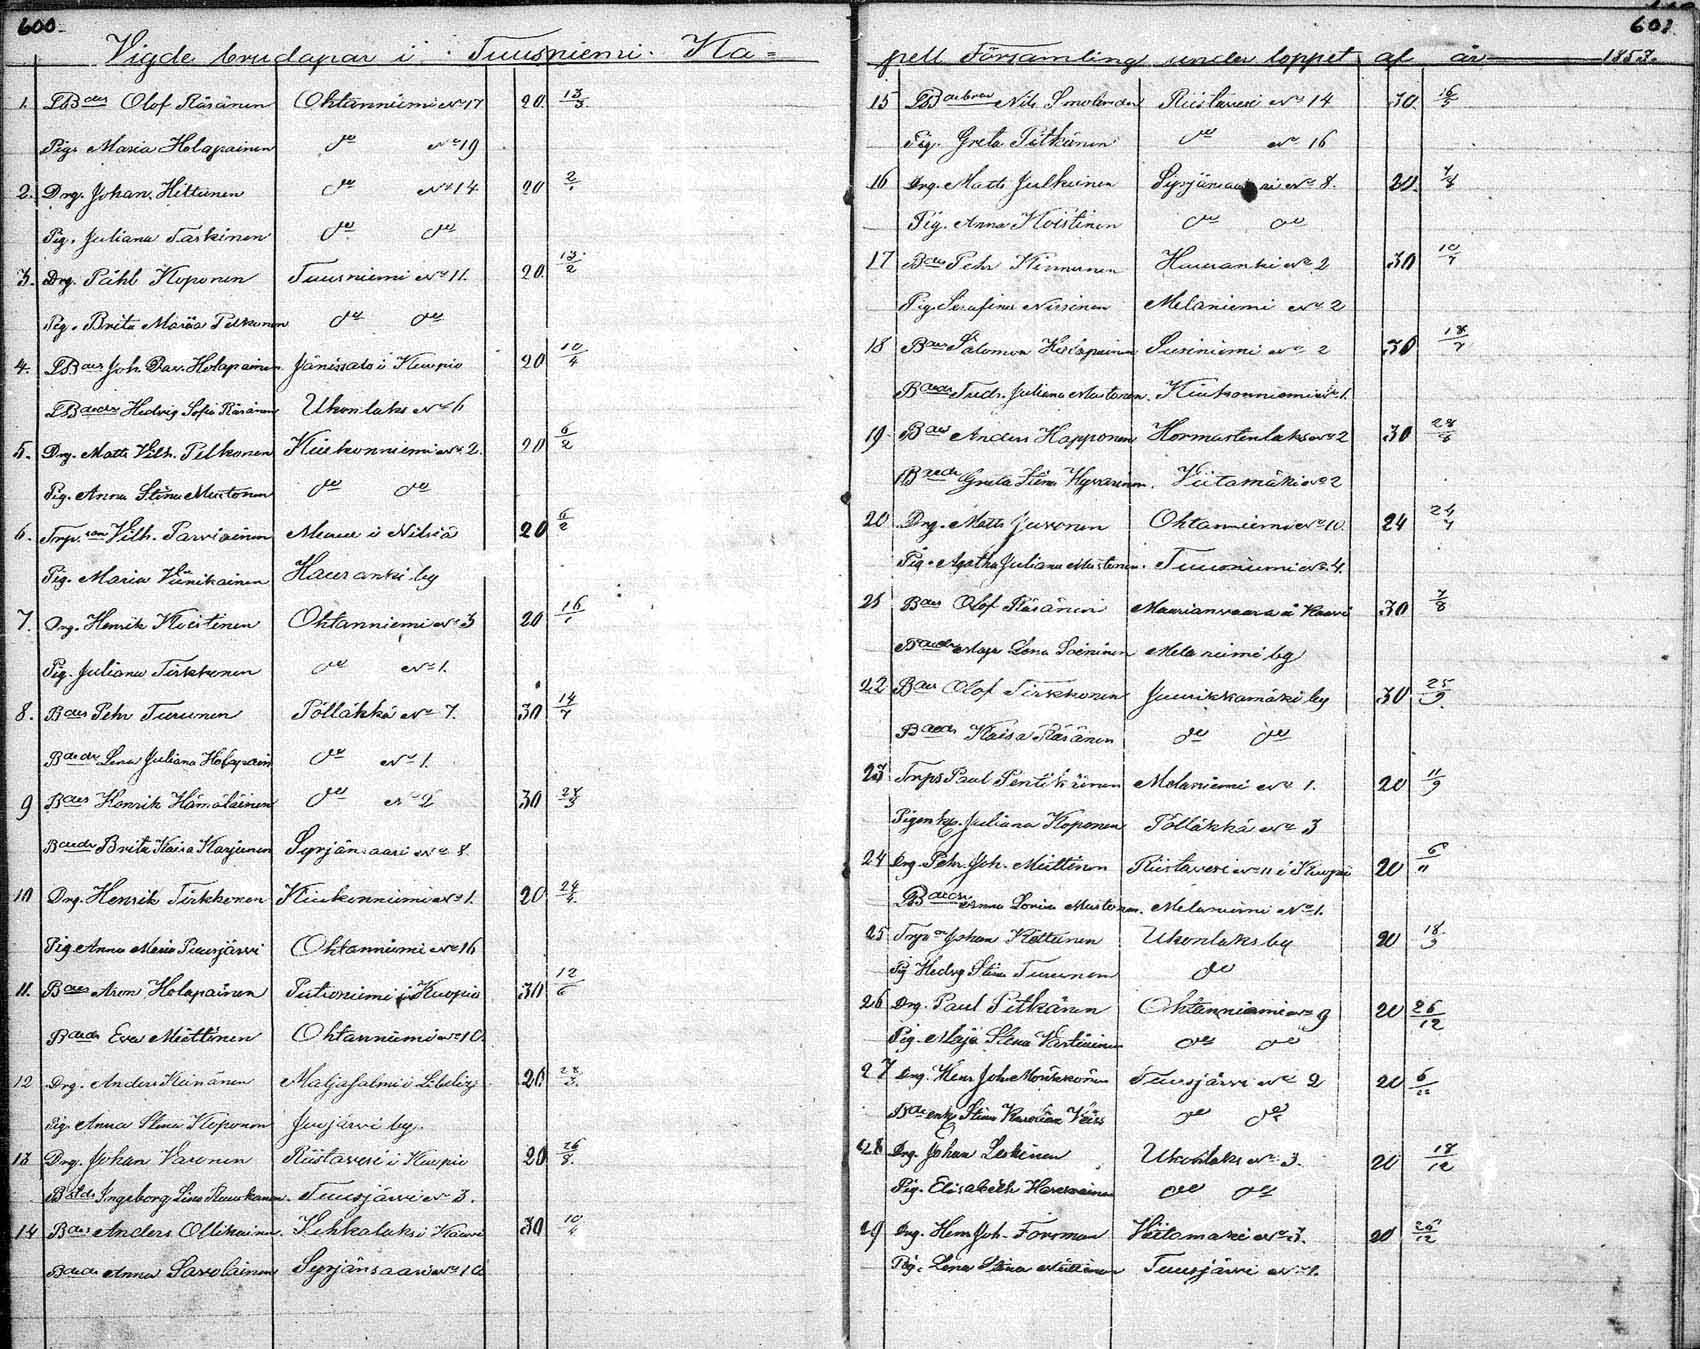 600.
Vigde brudapar i Tuusniemi Ka=
1. LBdes Olof Räsänen Ohtanniemi No 17 20. 13/3
Pig. Maria Holapainen do No 19
2. Drg. Johan Hittunen do No 14 20 2/1
Pig. Juliana Taskinen do do
3. Drg. Påhl Koponen Tuusniemi No 11. 20. 13/2
Pig. Brita Maria Pelkonen do do
4. LBdes Joh. Dav. Holapainen Jänissalo i Kuopio 20 10/4
LBdedr Hedvig Sofia Räsänen Ukonlaks No 6
5. Drg. Matts Vilh. Pelkonen Kiukonniemi No 2. 20 6/2
Pig. Anna Stina Mustonen do do
6. Trp. son Vilh. Parviainen i Nilsiä 20 6/2
Pig. Maria Väinikainen Hauranki by
7. Drg. Henrik Koistinen Ohtanniemi No 3 20 16/1
Pig. Juliana Tirkkonen do No 1.
8. Bdes Pehr Turunen Pölläkkä No 7. 30 14/7
Bdedr Lena Juliana Holapain do No 1.
9 Bdes Henrik Hämäläinen do No 2 30 28/3
Bdedr Brita Kaisa Karjunen Syrjänsaari No 8.
10 Drg. Henrik Tirkkonen Kiukonniemi No 1. 20 24/4
Pig. Anna Maria Tuusjärvi Ohtanniemi No 16
11. Bdes Aron Holapainen i Kuopio 30 12/6
Bdedr Eva Miettinen Ohtanniemi No 10.
12 Drg. Anders Keinänen Maljasalmi i Libelitz 20. 28/3
Pig. Anna Stina Koponen Juojärvi by.
13 Drg. Johan Varonen Riistavesi i Kuopio 20 26/8.
Ingeborg Lisa Tuusjärvi No 3.
14 Bdes Anders Ollikainen Vihkalaks i Kaavi 30 10/4
Bdedr Anna Savolainen Syrjänsaari No 10
601.
pell Församling under loppet af år 1853.
15 Nils Smolander Riistavesi No 14 30. 16/5
Pig. Greta Pitkänen do No 16
16 Drg. Matts Julkunen Syrjänsaari No 8. 20. 7/4
Pig. Anna Koistinen do do
17 Bdes Pehr Kinnunen Hauranki No 2 30 10/7
Pig. Serafina Nissinen Melaniemi No 2
18 Bdes Salomon Holapainen Susiniemi No 2 30 18/7
Bdedr Fredr. Juliana Mustonen. Kiukonniemi No 1.
19. Bdes Anders Happonen Hormastenlaks No 2 30 28/8
Bdedr Greta Stina Hyvärinen. Viitamäki No 2
20 Drg. Matts Juvonen Ohtanniemi No 10. 24 24/7
Pig. Agatha Juliana Mustonen. Tuusniemi No 4.
21 Bdes Olof Räsänen Maarianvaara i Kaavi 30 7/8
Bdedr Maja Lena Soininen Melaniemi by
22 Bdes Olof Tirkkonen Juurikkamäki by 30 25/9.
Bdedr Kaisa Räsänen do do
23 Trps Paul Pentikäinen Melaniemi No 1. 20 11/9
Juliana Koponen Pölläkkä No 3
24 Drg. Pehr. Joh. Miettinen Riistavesi No 11 i Kuopio 20 6/11
Anna Lovisa Mustonen. Melaniemi No 1.
25 Trpson Johan Kettunen Ukonlaks by 20 18./9
Pig Hedvg Stina Turunen do
26 Drg. Paul Pitkänen Ohtanniemi No 9 20 26/12
Pig. Maja Stina Vartiainen do do
27 Drg. Henr Joh. Mönkkönen Tuusjärvi No 2 20 6/11
Stina Karolina Väiss do do
28 Drg. Johan Leskinen Ukonlaks No 3. 20 18/12
Pig. Elisabeth do do
29 Drg. Henr Joh. Forsman Viitamäki No 3. 20 26/12
Pig. Lena Stina Miettinen Tuusjärvi No 1.